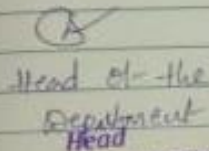 A
Head of the
Department
Head